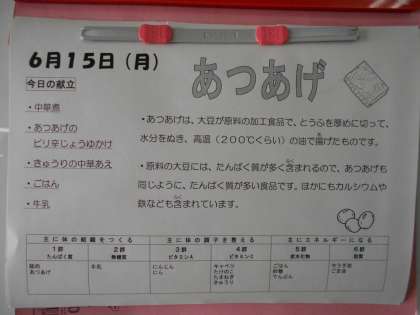 6月15日（月）
あつあげ
今日の献立
・中華煮
・あつあげの
ピリ辛じょうゆかけ
・きゅうりの中華あえ
・ごはん
・牛乳
・あつあげは、大豆が原料の加工食品で、とうふを厚めに切って、
水分をぬき、高温（200℃くらい）の油で揚げたものです。
・原料の大豆には、たんぱく質が多く含まれるので、あつあげも
同じように、たんぱく質が多い食品です。ほかにもカルシウムや
鉄なども含まれています。
主に体の組織をつくる 主に体の調子を整える 主にエネルギーになる
1群 2群 3群 4群 5群 6群
たんぱく質 無機質 ビタミンA ビタミンC 炭水化物 脂質
豚肉 牛乳 にんじん キャベツ ごはん サラダ油
あつあげ にら たけのこ 砂糖 ごま油
たまねぎ でんぷん
きゅうり